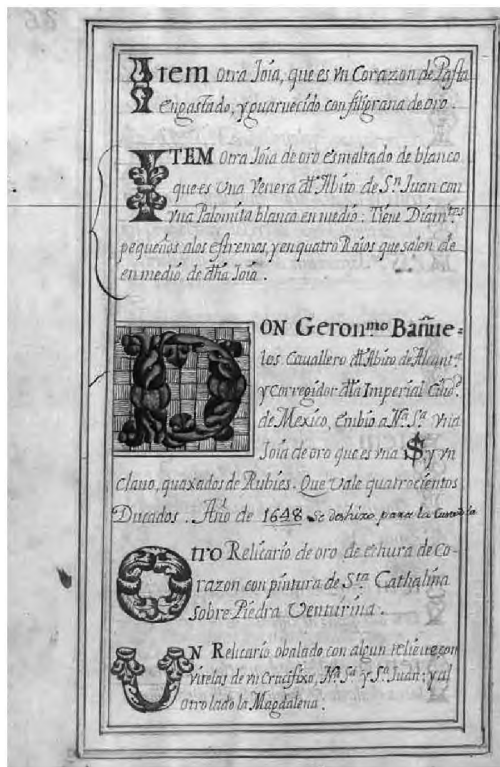 Item otra Joia, que es vn Corazon de Pasta
engastado, y guarnecido con filigrana de oro.
ITEM otra Joia de oro esmaltado de blanco
que es Vna Venera dl̃ Abito de Sⁿ. Juan con
vna Palomita blanca en medio: Tiene Diam.ᵗᵉˢ
pequeños alos estremos, y en quatro Raios que salen de
en medio de dħa Joia.
DON Geron.ᵐᵒ Bañue=
los Cauallero dl̃ Abito de Alcant.ᵃ
y Corregidor dl̃a Imperial Ciud.ᵈ
de Mexico, embio a Nᵃ. Sᵃ. vna
Joia de oro que es vna S y vn
clauo, quaxados de Rubies. Que Vale quatrocientos
Ducados. Año de 1648 se deshizo para la
Otro Relicario de oro de echura de Co-
razon con pintura de Sᵗᵃ Cathalina
sobre Piedra Venturina.
UN Relicario obalado con algun relieue con
vitelas de vn Crucifixo, Nᵃ. Sᵃ y Sⁿ. Juan; y al
otro lado la Magdalena.